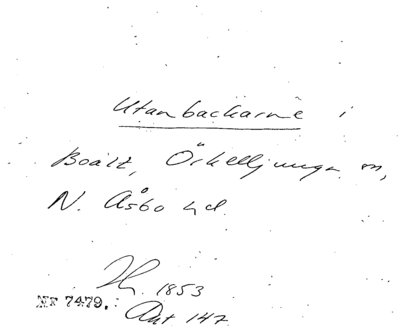 Utanbackarne i
Boalt, Örkelljunga sn,
N. Åsbo hd.
1853
NF 7479. Ant 147